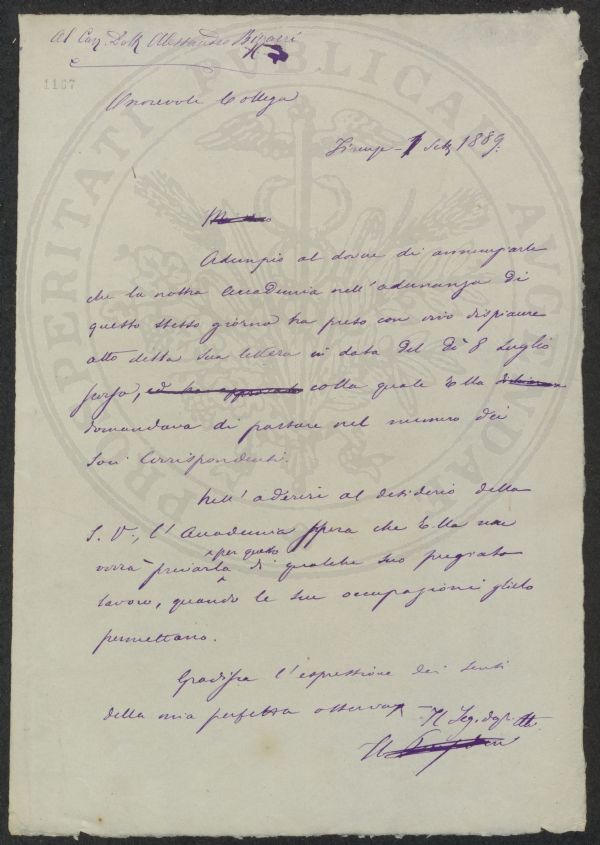 Al Cav. Dott. Alessandro Bizzarri
1167
Onorevole Collega
Firenze - 1 Sett 1889:
Adempio al dovere di annunziarle
che la nostra Accademia nell'adunanza di
questo stesso giorno ha preso con vivo dispiacere
atto della Sua lettera in data del dì 8 Luglio
scorso, ed ha approvato colla quale Ella
domandava di passare nel numero dei
Soci Corrispondenti.
Nell'aderire al desiderio della
S. V., l'Accademia spera che Ella non
vorrà per questo privarla di qualche suo pregiato
lavoro, quando le sue occupazioni glielo
permettano.
Gradisca l'espressione dei sensi
della mia perfetta osservaz - Il Seg. degli Atti.
Il